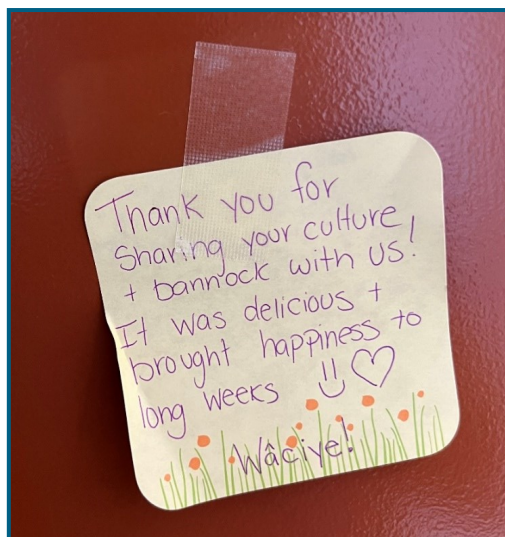 Thank you for
sharing your culture
+ bannock with us!
It was delicious +
brought happiness to
long weeks
Wâciye!